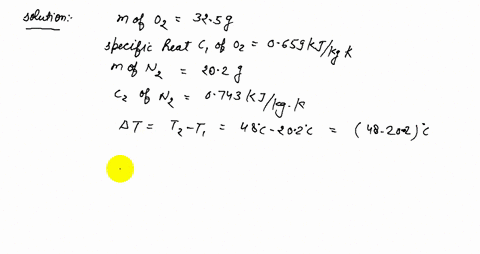 Solution:- m of O₂ = 32.5g
specific heat C₁ of O₂ = 0.659 KJ/kg K
m of N₂ = 20.2 g
C₂ of N₂ = 0.743 KJ/kg.K
ΔT = T₂-T₁ = 48°C-20.2°C = (48-20.2)°C